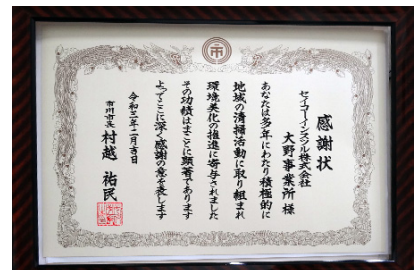 感謝状
セイコーインスツル株式会社
大野事業所 様
あなたは多年にわたり積極的に
地域の清掃活動に取り組まれ
環境美化の推進に寄与されました
その功績はまことに顕著であります
よってここに深く感謝の意を表します
令和三年十一月吉日
市川市長 村越 祐民